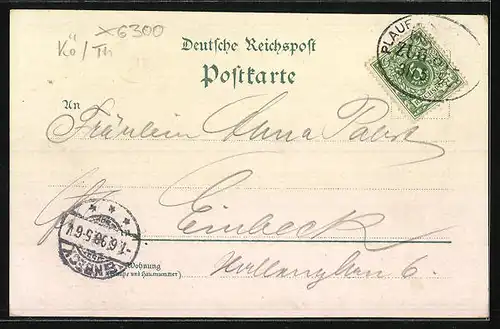 x6300
Kö/Th
Deutsche Reichspost
Postkarte
An
Fräulein Anna Pabst
Einbeck
Wohnung
(Straße und Hausnummer)
6.
PLAUE
ZUG
EINBECK
1.6.98.5-6.V.